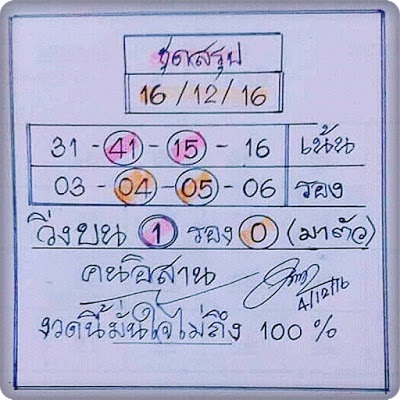 ชุดสรุป
16/12/16
31 - 41 - 15 - 16 เน้น
03 - 04 - 05 - 06 รอง
วิ่งบน 1 รอง 0 (มาตัว)
คนอิสาน
4/12/16
งวดนี้มั่นใจไม่ถึง 100 %